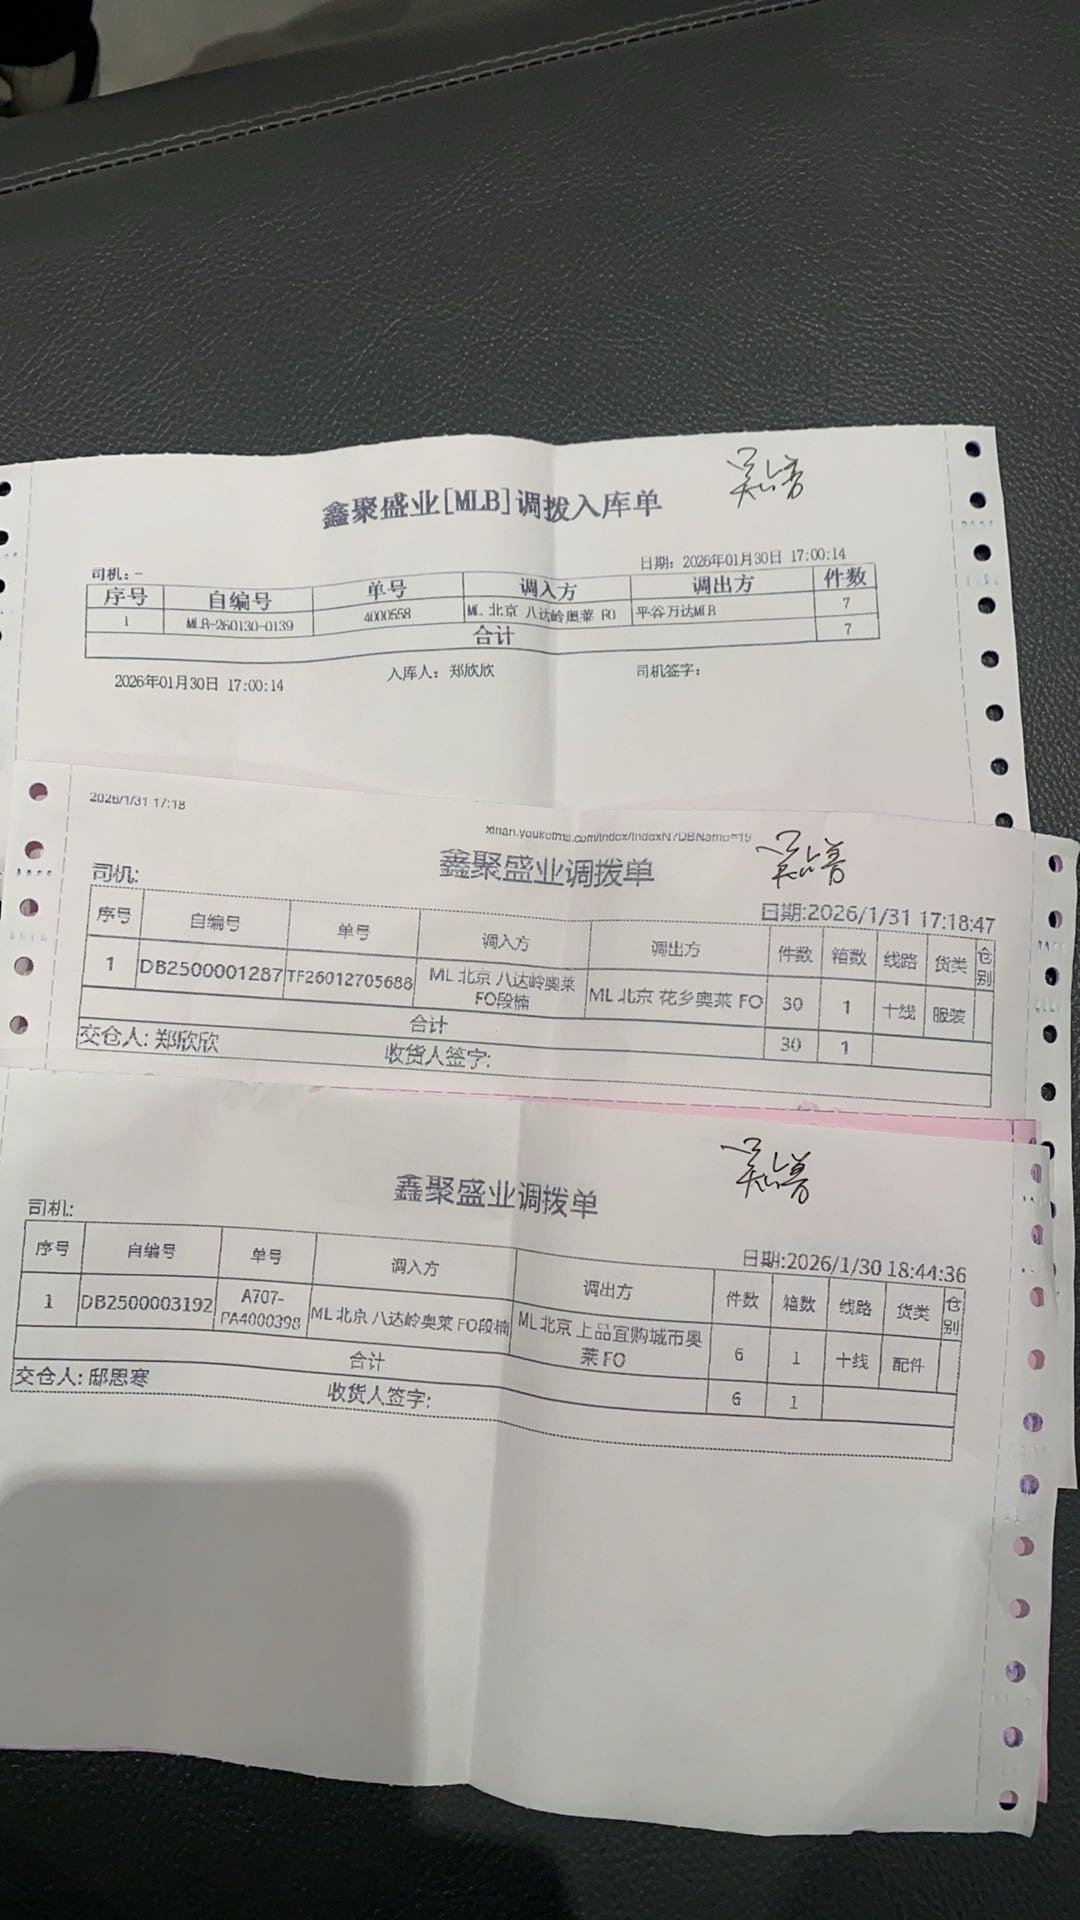 鑫聚盛业[MLB]调拨入库单
司机：-
日期：2026年01月30日 17:00:14
序号 自编号 单号 调入方 调出方 件数
1 MLR-260130-0139 4000558 ML 北京 八达岭奥莱 FO 平谷万达MLB 7
合计 7
2026年01月30日 17:00:14 入库人：郑欣欣 司机签字：
2026/1/31 17:18
xinan.youketms.com/Index/IndexN?DBName=19
鑫聚盛业调拨单
司机:
日期:2026/1/31 17:18:47
序号 自编号 单号 调入方 调出方 件数 箱数 线路 货类 仓别
1 DB2500001287 TF26012705688 ML 北京 八达岭奥莱 FO段楠 ML 北京 花乡奥莱 FO 30 1 十线 服装
合计 30 1
交仓人: 郑欣欣 收货人签字:
鑫聚盛业调拨单
司机:
日期:2026/1/30 18:44:36
序号 自编号 单号 调入方 调出方 件数 箱数 线路 货类 仓别
1 DB2500003192 A707-PA4000398 ML 北京 八达岭奥莱 FO段楠 ML 北京 上品宜购城市奥莱 FO 6 1 十线 配件
合计 6 1
交仓人: 邸思寒 收货人签字: